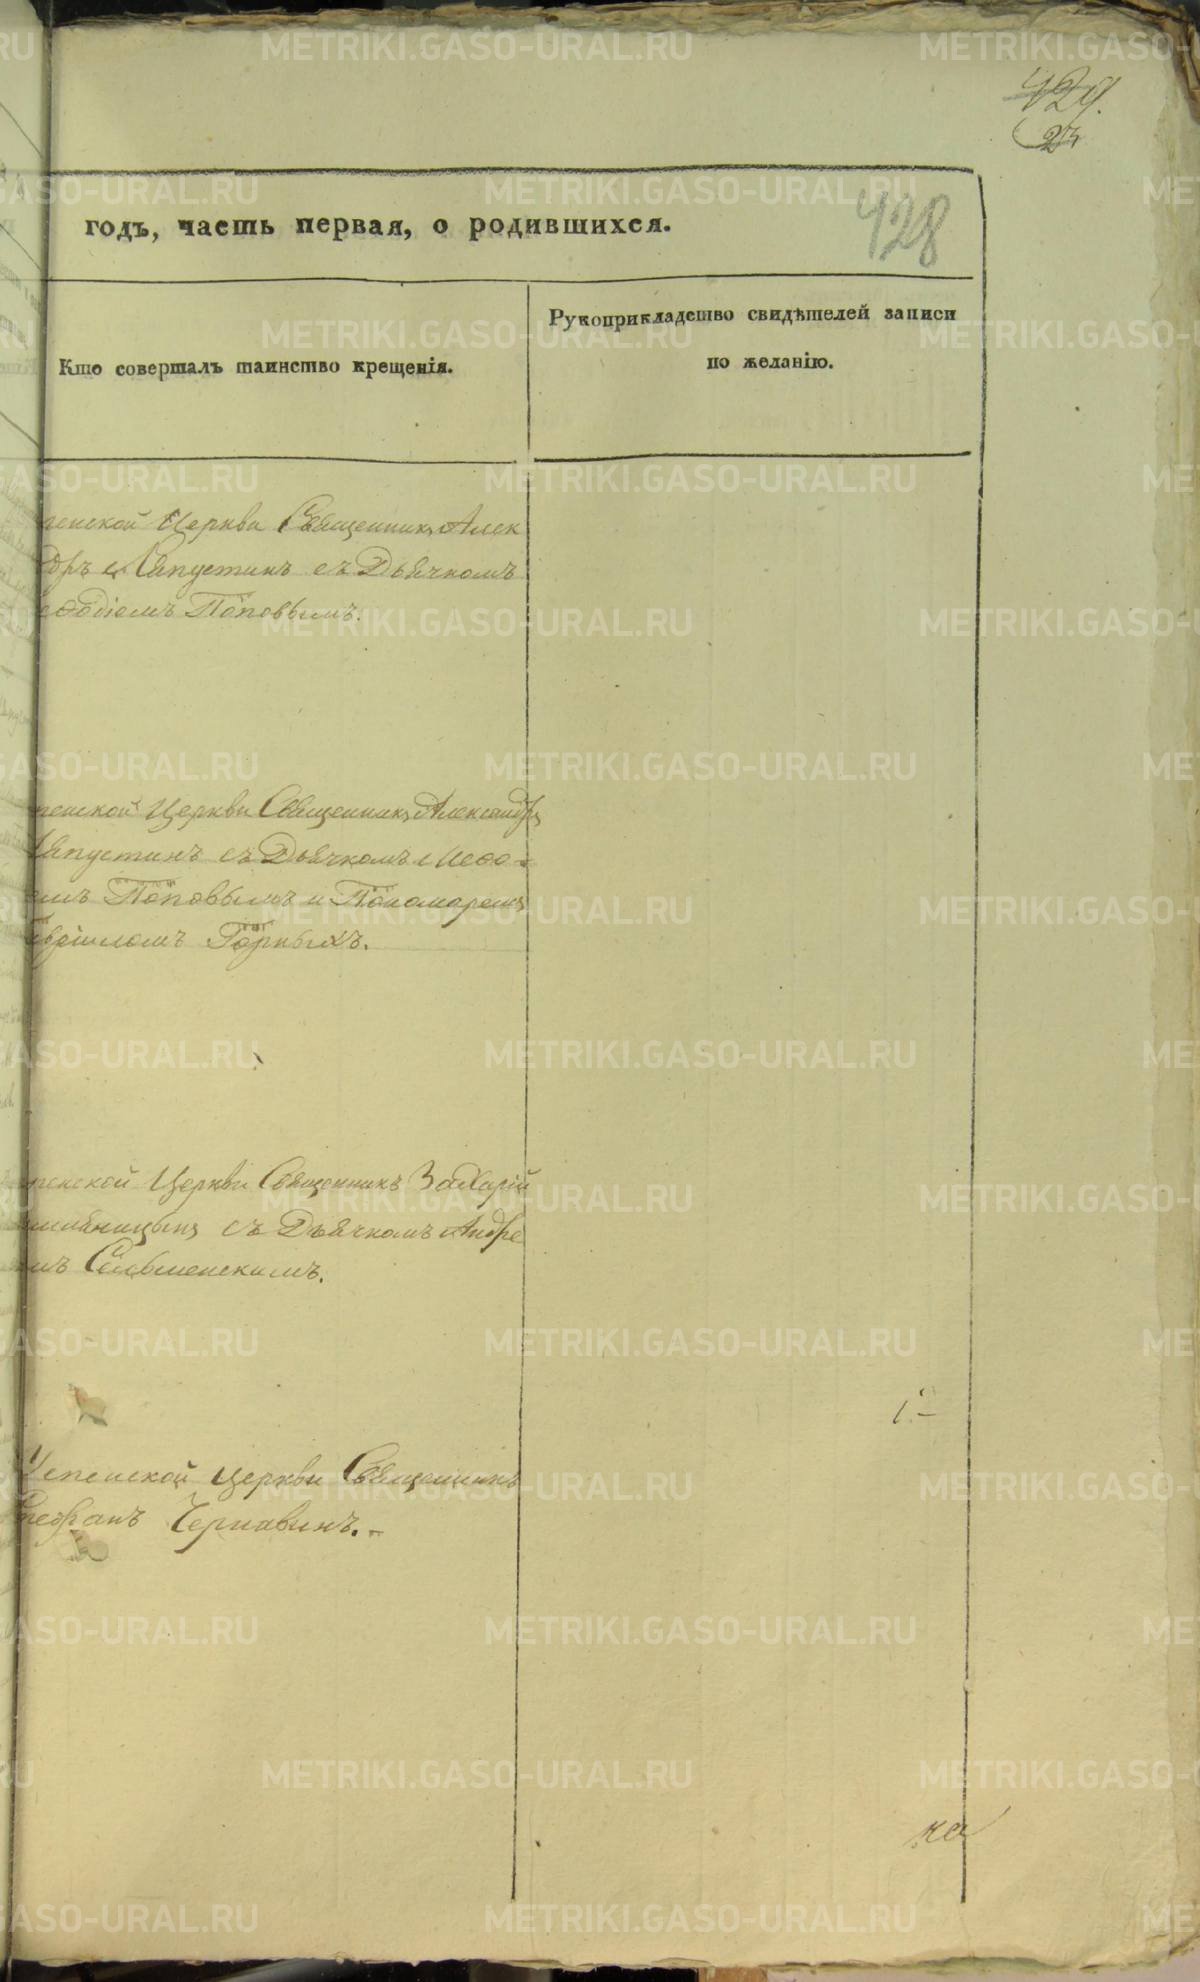 429.
23
428
годъ, часть первая, о родившихся.
Кто совершалъ таинство крещенія.
Рукоприкладство свидѣтелей записи
по желанію.
пенской Церкви Священникъ Алек
дръ Капустинъ съ Дьячкомъ
еѳодіемъ Поповымъ.
пенской Церкви Священникъ Александръ
Капустинъ съ Дьячкомъ Меѳо-
емъ Поповымъ и Пономаремъ
авріиломъ Горныхъ.
пенской Церкви Священникъ Захарій
съ Дьячкомъ Андре
мъ
Успенской Церкви Священникъ
Стефанъ Чернавинъ.
на
METRIKI.GASO-URAL.RU